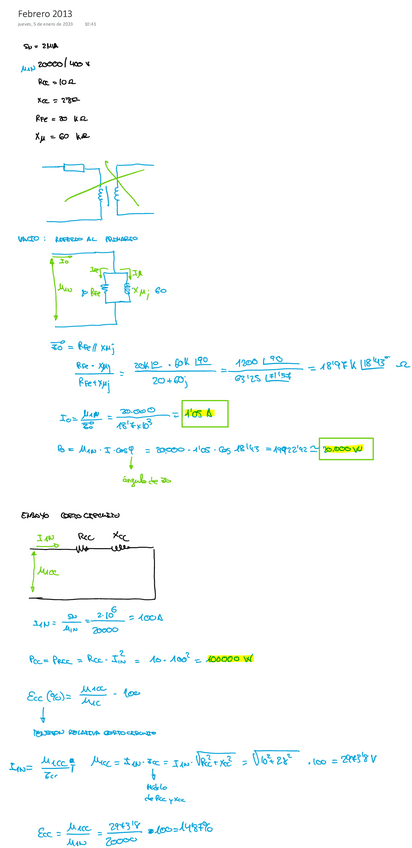 Febrero 2013
jueves, 2 de enero de 2020 10:41
Sn = 2 MVA
μ1N 20000/400 V
Rcc = 10 Ω
Xcc = 28 Ω
RFe = 20 kΩ
Xμ = 60 kΩ
VACIO: REFERIDO AL PRIMARIO
I0
μ1N
IFe
Iμ
RFe
Xμj 60
Z0 = RFe // Xμj
RFe · Xμj / RFe + Xμj = 20K|0 · 60K|90 / 20 + 60j = 1200 |90 / 63'25 |71'57 = 18'97 K |18'43° Ω
I0 = μ1N / Z0 = 20.000 / 18'97×10³ = 1'05 A
P0 = μ1N · I · cos φ = 20.000 · 1'05 · cos 18'43 = 19922'92 ≃ 20.000 W
ángulo de Z0
ENSAYO CORTOCIRCUITO
I1N Rcc Xcc
μ1cc
I1N = Sn / μ1N = 2·10⁶ / 20000 = 100 A
Pcc = PRcc = Rcc · I1N² = 10 · 100² = 100000 W
Ecc (%) = μ1cc / μ1C · 100
TENSION RELATIVA CORTOCIRCUITO
I1N = μ1cc / Zcc μ1cc = I1N · Zcc = I1N · √Rcc² + Xcc² = √10² + 28² · 100 = 2973'8 V
Módulo
de Rcc y Xcc
Ecc = μ1cc / μ1N = 2973'8 / 20000 · 100 = 14'87%